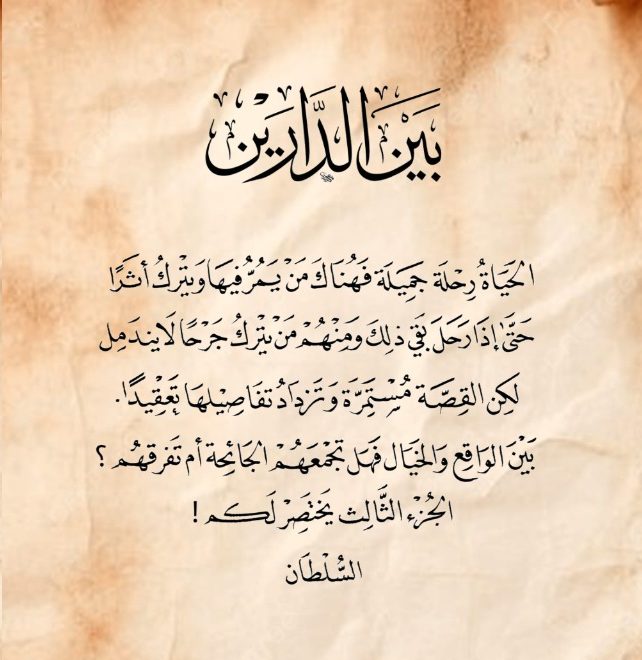 بَيْنَ الدَّارَيْن
الحَيَاةُ رِحْلَة جَمِيلَة فَهُنَاكَ مَنْ يَمُرُّ فِيهَا وَيَتْرِكُ أثَرًا
حَتَّىٰ إذَا رَحَلَ بَقِي ذلِكَ وَمِنْهُمْ مَنْ يَتْرِكُ جَرْحًا لَا يندَمِل
لَكِن القِصَّة مُسْتَمِرَّة وَتَزدَادُ تفَاصِيْلهَا تَعقِيدًا.
بَيْنَ الوَاقِعِ وَالخيَال فَهَل تجْمَعَهُمْ الجَائِحة أم تَفرقهُم ؟
الجُزْء الثَّالِث يَختَصِرْ لَكم !
السُّلْطَان